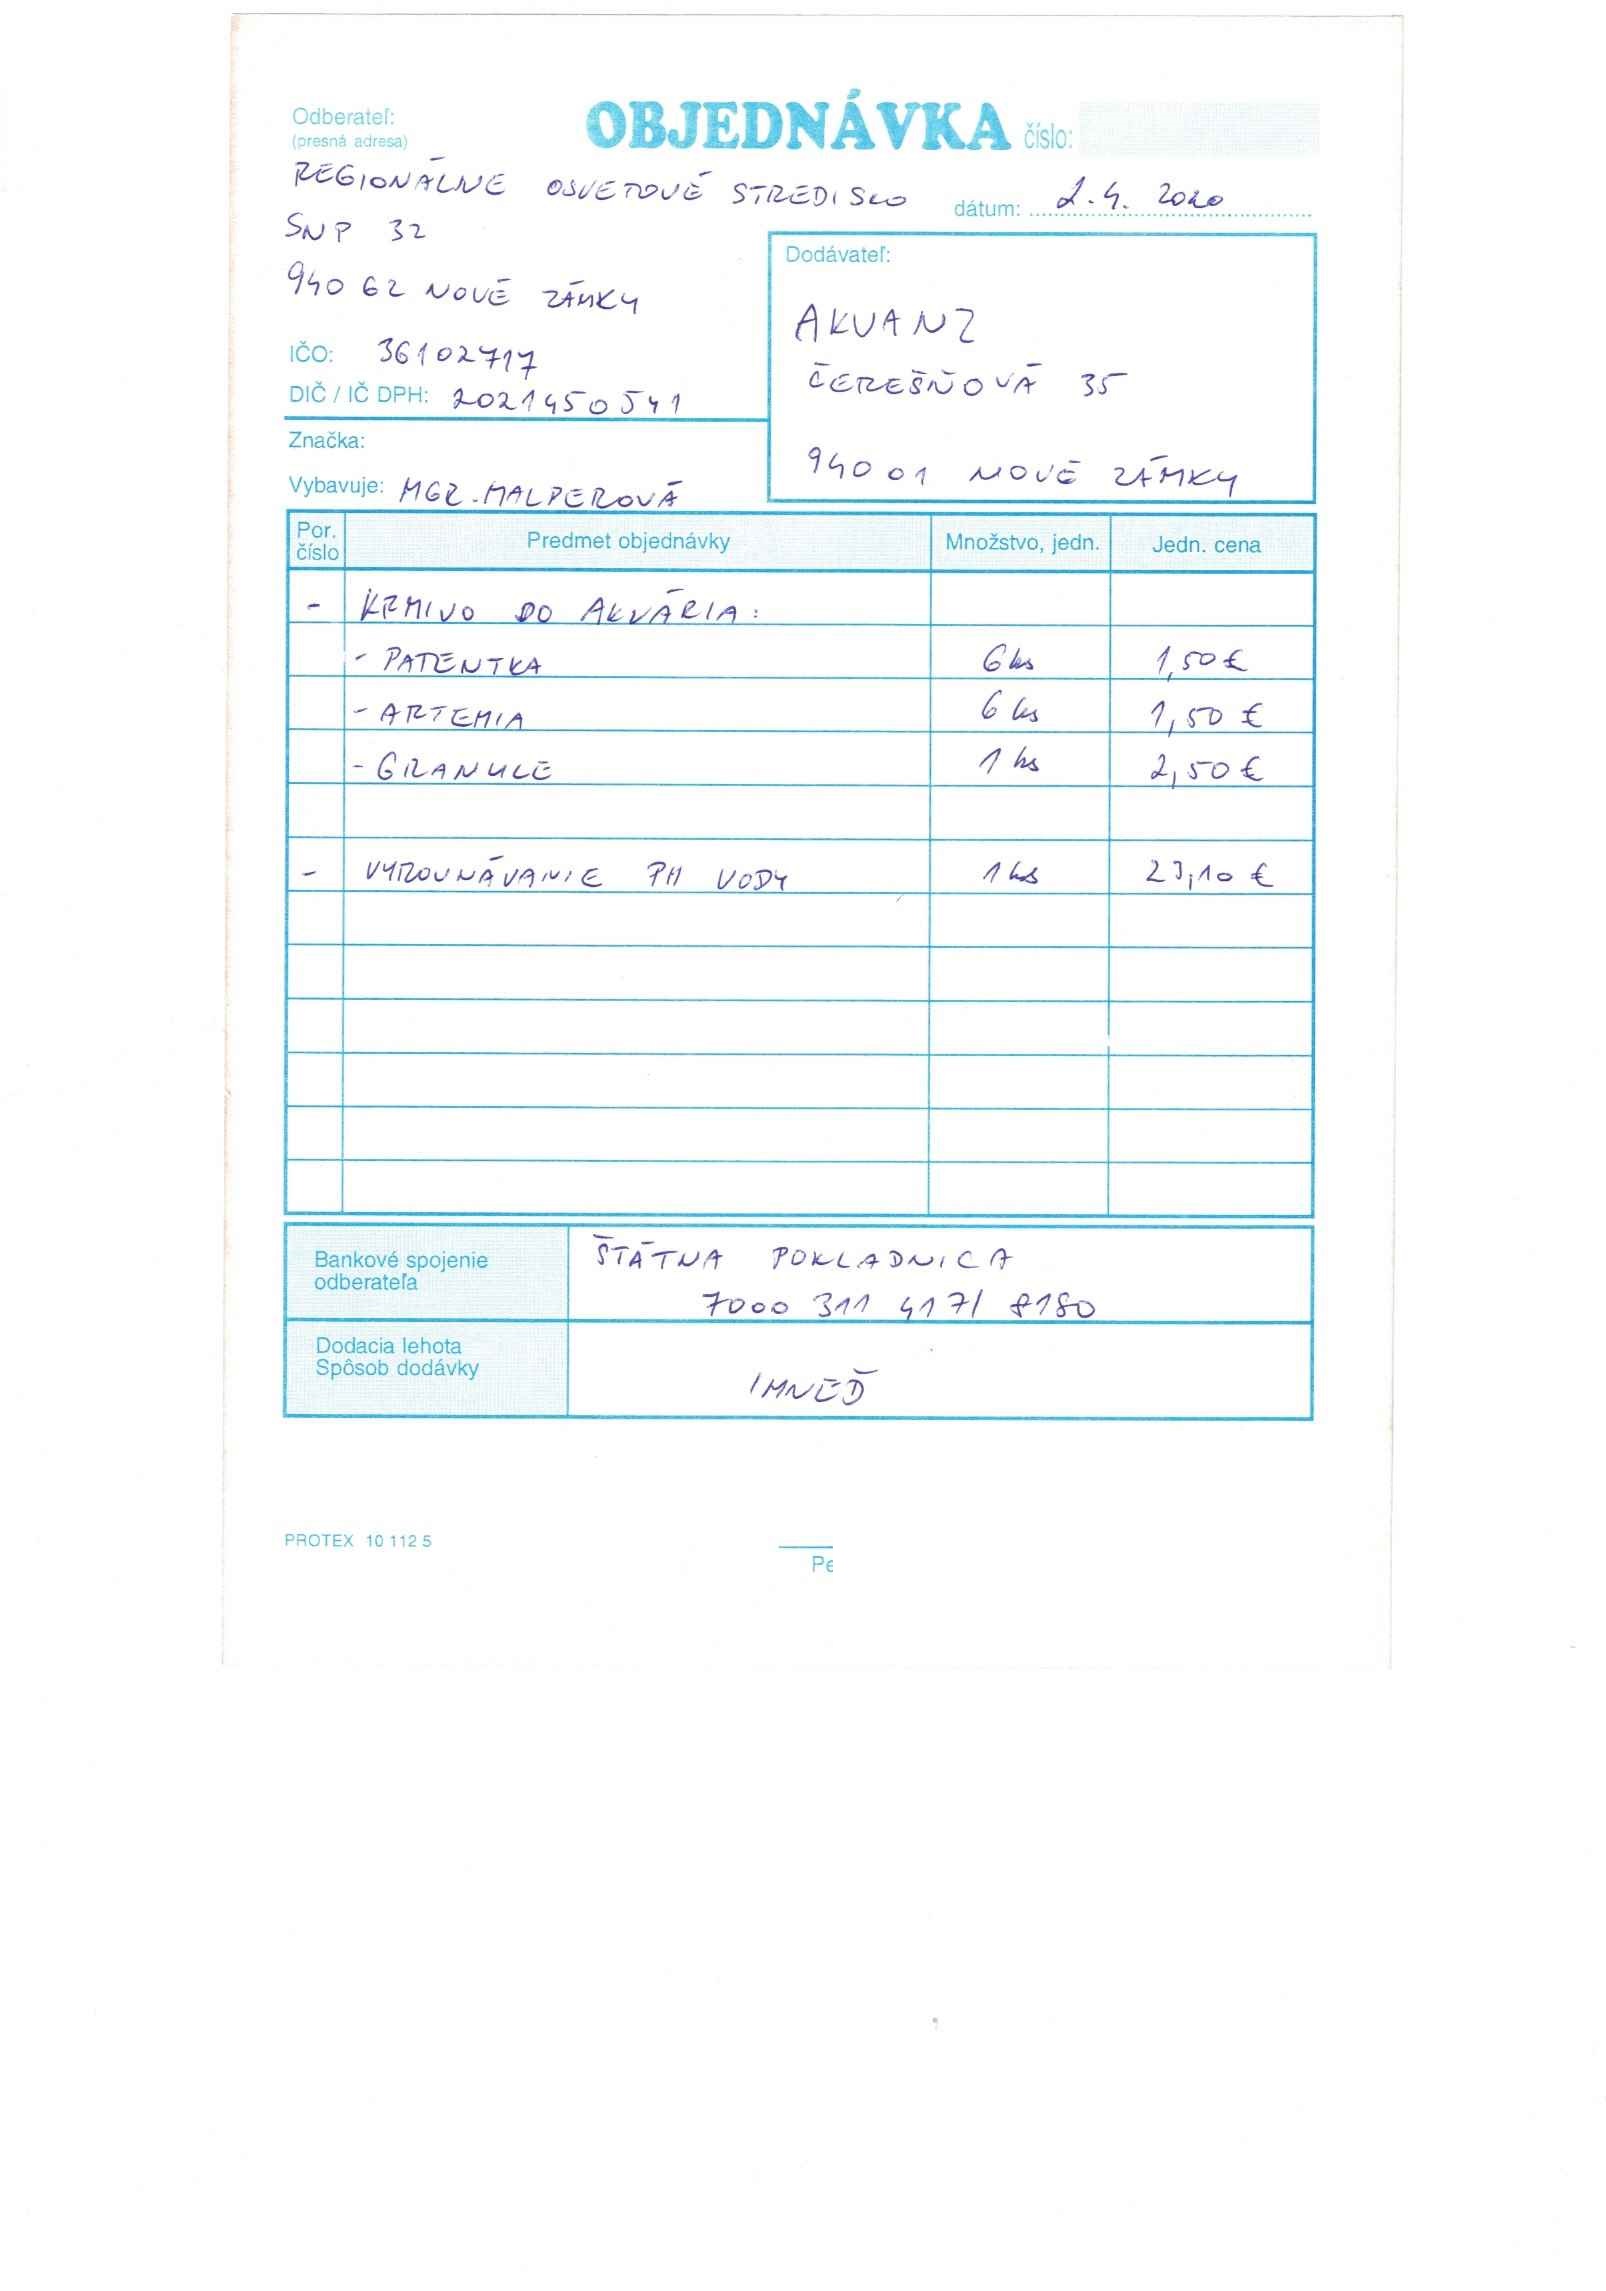 Odberateľ:
(presná adresa)
OBJEDNÁVKA číslo:
REGIONÁLNE OSVETOVÉ STREDISKO
dátum: 2.4. 2020
SNP 32
940 62 NOVÉ ZÁMKY
IČO: 36102717
DIČ / IČ DPH: 2021450541
Značka:
Vybavuje: MGR. MALPEROVÁ
Dodávateľ:
AKVANZ
ČEREŠŇOVÁ 35
940 01 NOVÉ ZÁMKY
Por. číslo Predmet objednávky Množstvo, jedn. Jedn. cena
- KRMIVO DO AKVÁRIA:
- PATENTKA 6 ks 1,50 €
- ARTEMIA 6 ks 1,50 €
- GRANULE 1 ks 2,50 €
- VYROVNÁVANIE PH VODY 1 ks 23,10 €
Bankové spojenie
odberateľa
ŠTÁTNA POKLADNICA
7000 311 417/ 8180
Dodacia lehota
Spôsob dodávky
IHNEĎ
PROTEX 10 112 5
Pe